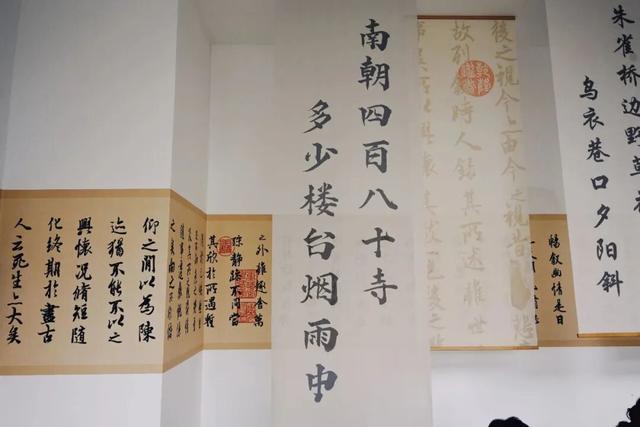 朱雀桥边野草
乌衣巷口夕阳斜
暢叙幽情是日
後之視今亦由今之視昔
故列叙時人錄其所述雖世
南朝四百八十寺
多少楼台烟雨中
之外雖趣舍萬
殊静躁不同當
其欣於所遇暫
仰之閒以為陳
迹猶不能不以之
興懷況脩短隨
化終期於盡古
人云死生亦大矣